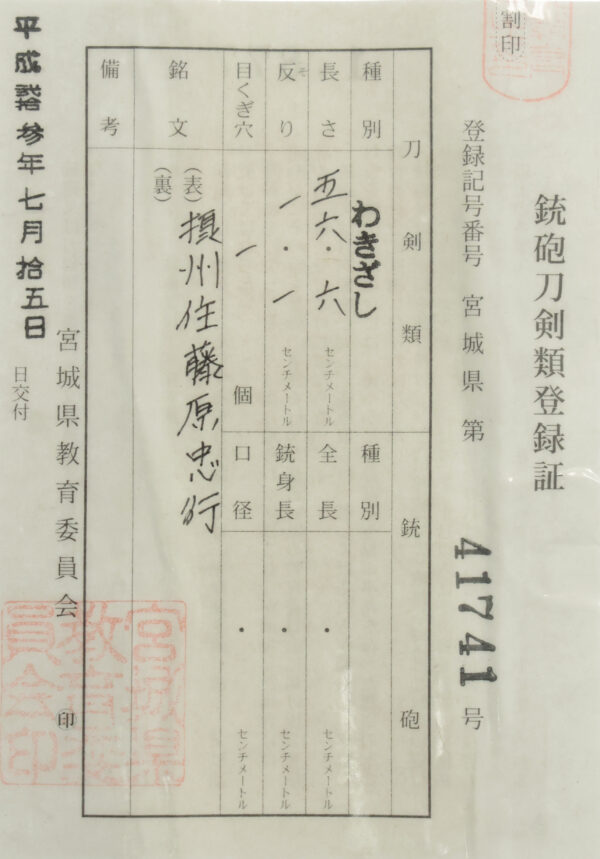 割印
銃砲刀剣類登録証
登録記号番号 宮城県 第 41741 号
刀剣類
銃砲
種別 わきざし
種別
長さ 五六・六 センチメートル
全長 ・ センチメートル
反り 一・一 センチメートル
そ
銃身長 ・ センチメートル
目くぎ穴 一 個
口径 ・ センチメートル
銘文 (表) 摂州住藤原忠行
(裏)
備考
宮城県教育委員会 印
平成拾参年七月拾五日
日交付
宮城県
教育委
員会印